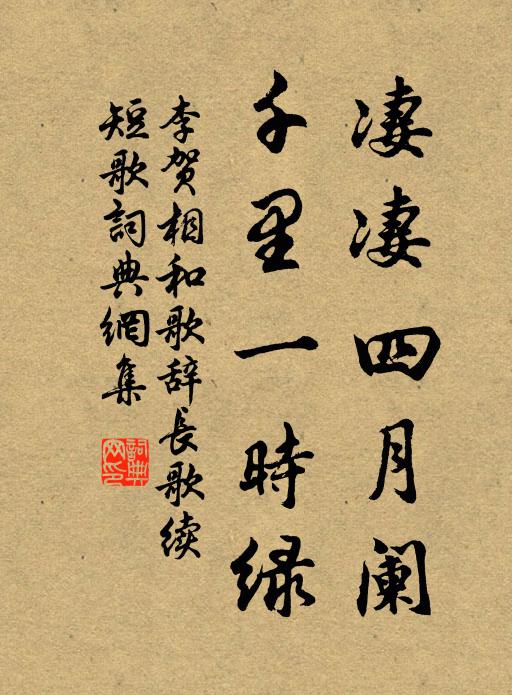 凄凄四月阑
千里一時緑
李贺相和歌辞長歌续
短歌詞典網集
詞典
网印